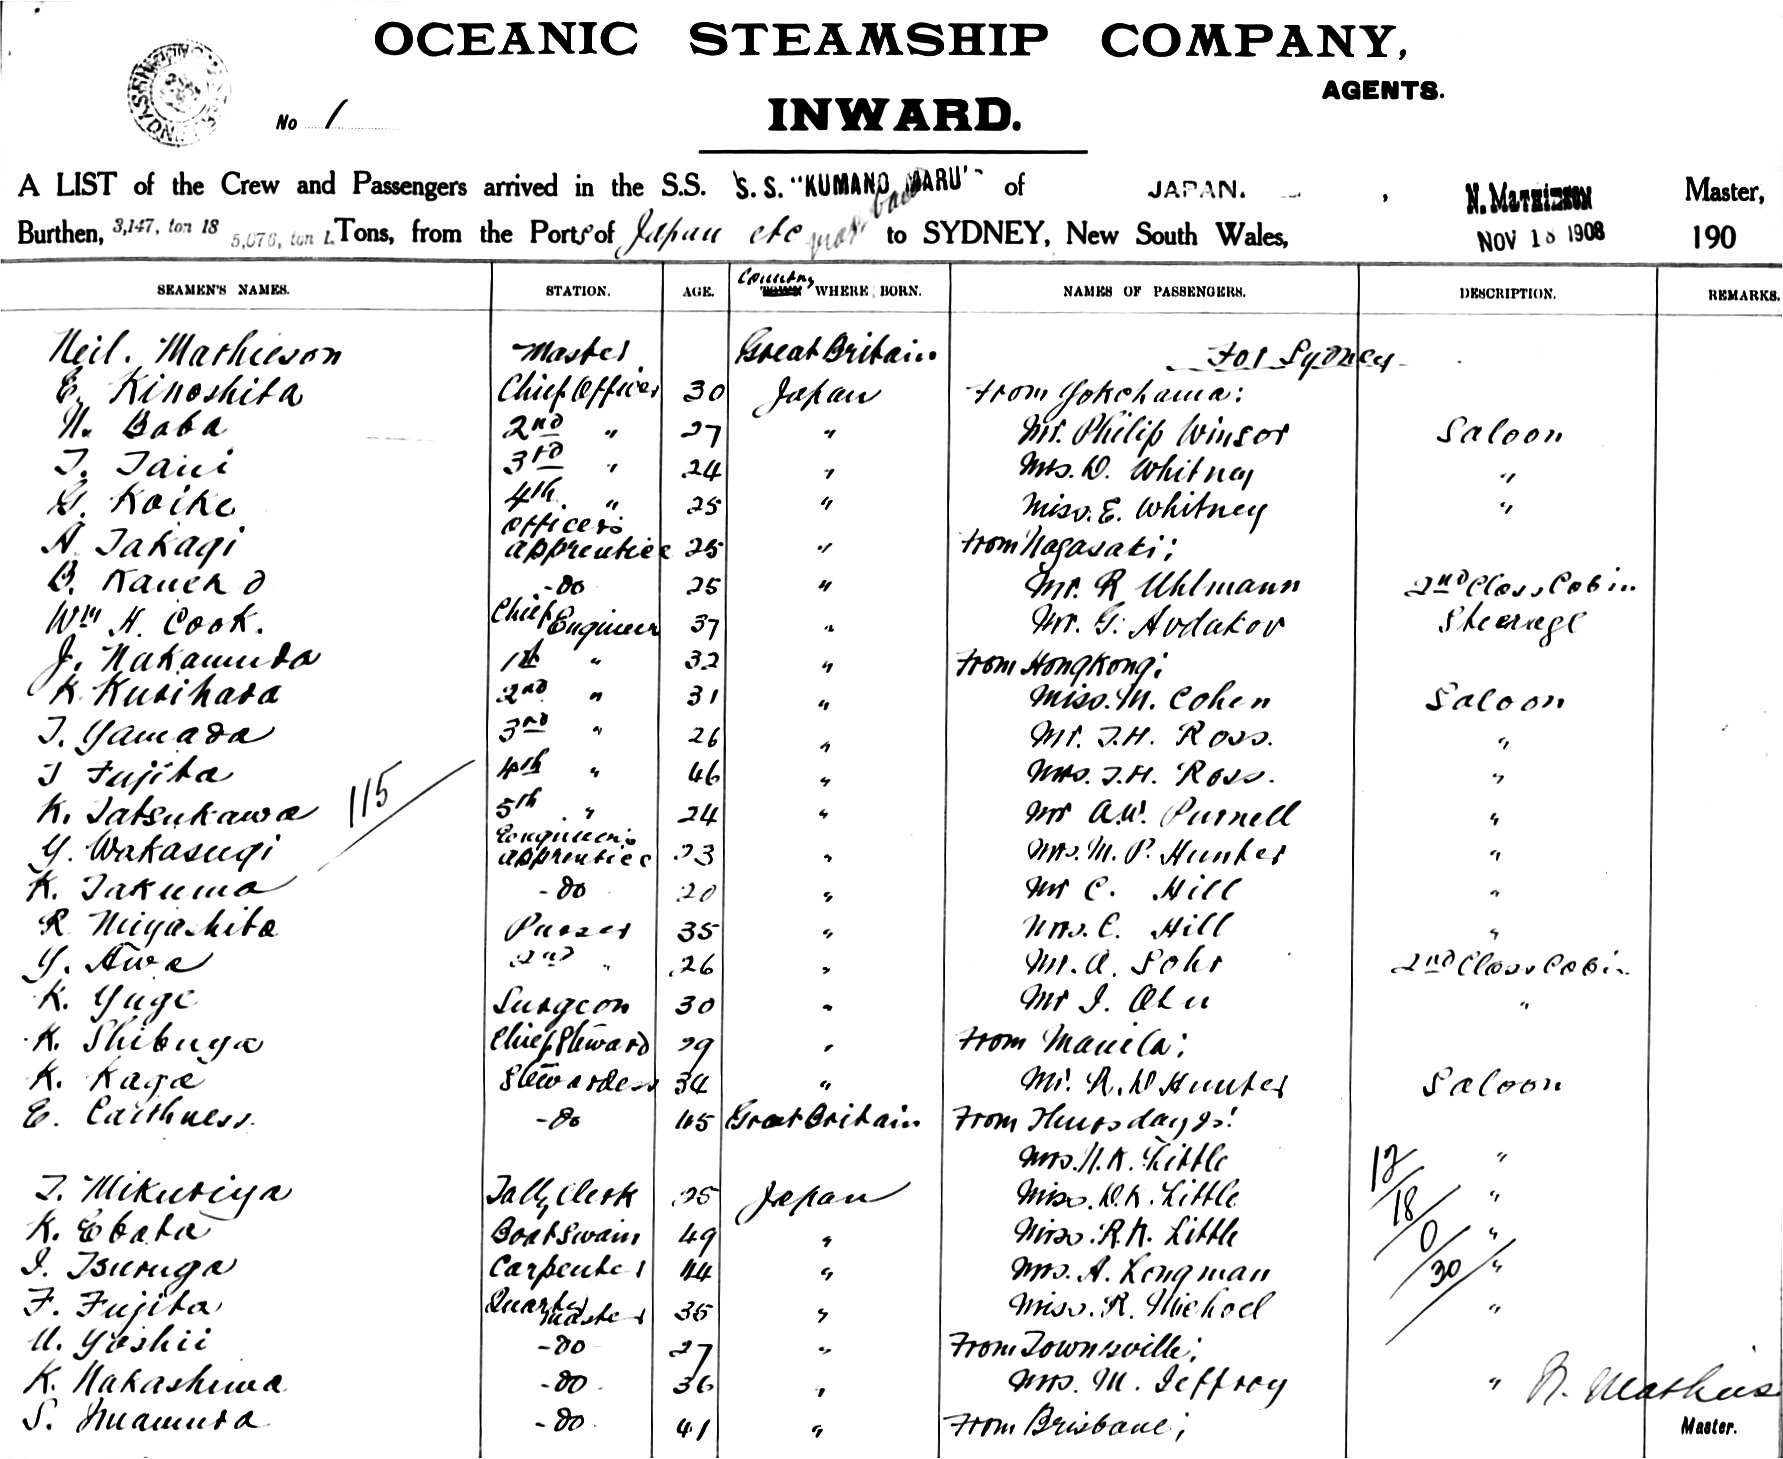 OCEANIC STEAMSHIP COMPANY,
AGENTS.
No 1
INWARD.
A LIST of the Crew and Passengers arrived in the S.S. S.S. "KUMANO MARU" of JAPAN. , N. MATHIESON Master,
Burthen, 3,147, ton 18 5,076, ton 1. Tons, from the Ports of Japan etc to SYDNEY, New South Wales, NOV 18 1908 190
SEAMEN'S NAMES. STATION. AGE. Country WHERE BORN. NAMES OF PASSENGERS. DESCRIPTION. REMARKS.
Neil. Mathieson Master Great Britain For Sydney
E. Kinoshita Chief Officer 30 Japan From Yokohama:
N. Baba 2nd " 27 " Mr. Philip Winsor Saloon
T. Tani 3rd " 24 " Mrs. D. Whitney "
G. Koike 4th " 25 " Miss. E. Whitney "
A. Takagi Officer's apprentice 25 " From Nagasaki:
B. Kaneko - do 25 " Mr. R Uhlmann 2nd Class Cabin
Wm H. Cook. Chief Engineer 37 " Mr. G. Avdakov Steerage
J. Nakamura 1st " 32 " From Hongkong:
K. Kurihara 2nd " 31 " Miss. M. Cohen Saloon
T. Yamada 3rd " 26 " Mr. T.H. Ross. "
T Fujita 4th " 46 " Mrs. T.H. Ross. "
K. Tatsukawa 115 5th " 24 " Mr A.W. Purnell "
Y. Wakasugi Engineer's apprentice 23 " Mrs. M. P. Hunter "
K. Takuma - do 20 " Mr C. Hill "
R. Miyashita Purser 35 " Mrs. C. Hill "
Y. Awa 2nd " 26 " Mr. A. Sohr 2nd Class Cabin
K. Yuge Surgeon 30 " Mr I. "
K. Shibuya Chief Steward 29 " From Manila:
K. Kaga Stewardess 34 " Mr. R. D Hunter Saloon
E. Caithness. - do 45 Great Britain From Thursday Is:
Mrs. N.K. Little 12 "
T. Mikuriya Tally Clerk 25 Japan Miss. D.K. Little 18 "
K. Ebata Boatswain 49 " Miss. R.K. Little 0 "
I. Tsuruga Carpenter 44 " Mrs. A. Longman 30 "
F. Fujita Quarter master 35 " Miss. R. Michael "
U. Yoshii - do 27 " From Townsville:
K. Nakashima - do 36 " Mrs. M. Jeffroy " N. Mathieson
S. Imamura - do 41 " From Brisbane; Master.